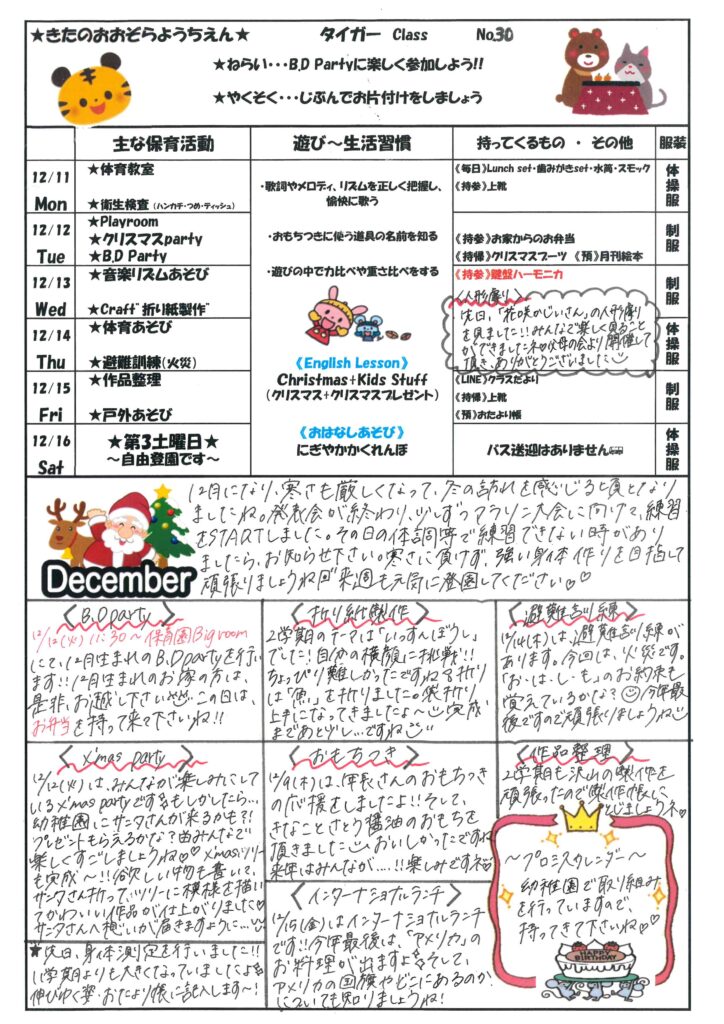 ★きたのおおぞらようちえん★ タイガー Class No.30
★ねらい・・・B.D Partyに楽しく参加しよう!!
★やくそく・・・じぶんでお片付けをしましょう
主な保育活動 遊び～生活習慣 持ってくるもの ・ その他 服装
12/11 Mon
★体育教室
★衛生検査（ハンカチ・つめ・ティッシュ）
《毎日》Lunch set・歯みがきset・水筒・スモック
《持参》上靴
体操服
12/12 Tue
★Playroom
★クリスマスparty
★B.D Party
《持参》お家からのお弁当
《持帰》クリスマスブーツ 《預》月刊絵本
制服
12/13 Wed
★音楽リズムあそび
★Craft"折り紙製作"
《持参》鍵盤ハーモニカ
制服
12/14 Thu
★体育あそび
★避難訓練(火災)
体操服
12/15 Fri
★作品整理
★戸外あそび
《LINE》クラスだより
《持帰》上靴
《預》おたより帳
制服
12/16 Sat
★第3土曜日★
～自由登園です～
バス送迎はありません
体操服
・歌詞やメロディ、リズムを正しく把握し、
愉快に歌う
・おもちつきに使う道具の名前を知る
・遊びの中で力比べや重さ比べをする
《English Lesson》
Christmas+Kids Stuff
(クリスマス+クリスマスプレゼント)
《おはなしあそび》
にぎやかかくれんぼ
〈人形劇り〉
先日、「花咲かじいさん」の人形劇
を見ました!!みんなで楽しく見ること
ができましたネ 父母の会より開催して
頂き、ありがとうございました
12月になり、寒さも厳しくなって、冬の訪れを感じる と なり
ましたね。発表会が終わり、少しずつマラソン大会に向けて、練習
をSTARTしました。その日の体調等で練習できない時があり
ましたら、お知らせ下さい。寒さに負けず、強い身体作りを目指して
頑張りましょうね 来週も元気に登園してください♡♡
December
〈B.D party〉
12/12(火)11:30～保育園Big room
にて、12月生まれのB.D partyを行い
ます!!12月生まれのお家の方は、
是非、お越し下さい この日は、
お弁当を持って来て下さいね!!
〈折り紙製作〉
2学期のテーマは「いっすんぼうし」
でした!自分の横顔に挑戦!!
ちょぴり難しかったですね 折り
は「魚」を折りました。袋折り
上手になってきましたよ～ 完成
まであと少し…ですね。
〈避難訓練〉
12/14(木)は、避難訓練が
あります。今回は、火災です。
「お・は・し・も」のお約束も
覚えているかな? 今年最
後ですので頑張りましょうね
〈X'mas party〉
12/12(火)は、みんなが楽しみにして
いるX'mas partyです もしかしたら…
幼稚園にサンタさんが来るかも?!
プレゼントもらえるかな? みんなで
楽しくすごしましょうね♡♡ X'masツリー
も完成～!!欲しい物も書いて、
サンタさん折って、ツリーに模様を描い
てかわいい作品が仕上がりました♡
サンタさんへ想いが届きますように…
〈おもちつき〉
12/9(木)は、年長さんのおもちつき
の応援をしましたよ!!そして、
きなことさとう醤油のおもちを
頂きました おいしかったですね
来年はみんなが…!!楽しみですネ
〈作品整理〉
2学期も沢山の製作を
頑張ったので製作帳に
とじましょうネ
〈インターナショナルランチ〉
12/15(金)はインターナショナルランチ
です!!今年最後は、「アメリカ」の
お料理が出ますよ そして、
アメリカの国旗やどこにあるのか
についても知りましょうね!
～プロミスカレンダー～
幼稚園で取り組み
を行っていますので、
持ってきて下さいね♡
HAPPY BIRTHDAY
★先日、身体測定を行いました!!
1学期よりも大きくなっていましたよ
伸びゆく姿・おたより帳に記入します～!